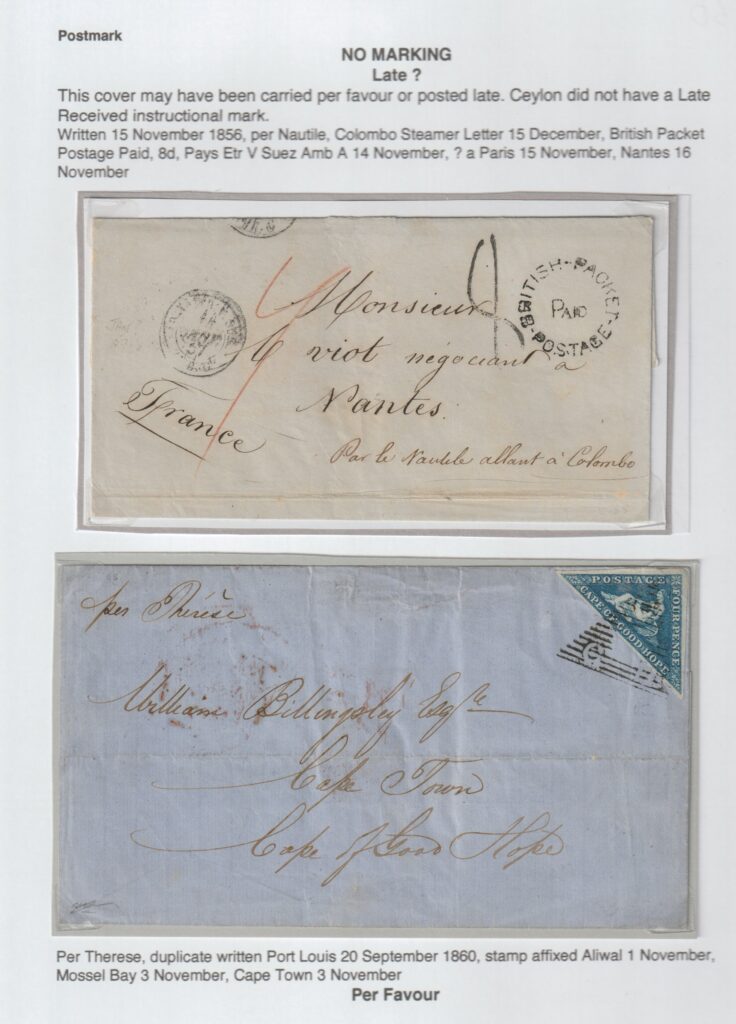 Postmark
NO MARKING
Late ?
This cover may have been carried per favour or posted late. Ceylon did not have a Late
Received instructional mark.
Written 15 November 1856, per Nautile, Colombo Steamer Letter 15 December, British Packet
Postage Paid, 8d, Pays Etr V Suez Amb A 14 November, ? a Paris 15 November, Nantes 16
November
BRITISH-PACKET
PAID
POSTAGE
Monsieur
viot négociant a
Nantes.
France
Par le Nautile allant à Colombo
per Thérèse
POSTAGE
FOUR PENCE
CAPE OF GOOD HOPE
William Billingsley Esqre
Cape Town
Cape of Good Hope
Per Therese, duplicate written Port Louis 20 September 1860, stamp affixed Aliwal 1 November,
Mossel Bay 3 November, Cape Town 3 November
Per Favour